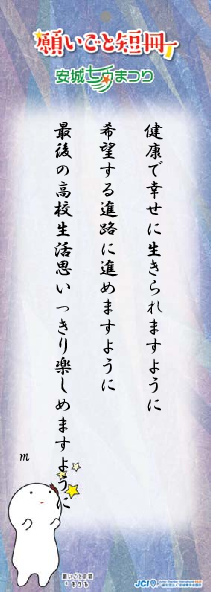 願いごと短冊
安城七夕まつり
健康で幸せに生きられますように
希望する進路に進めますように
最後の高校生活思いっきり楽しめますように
m
願いごと短冊
JCI